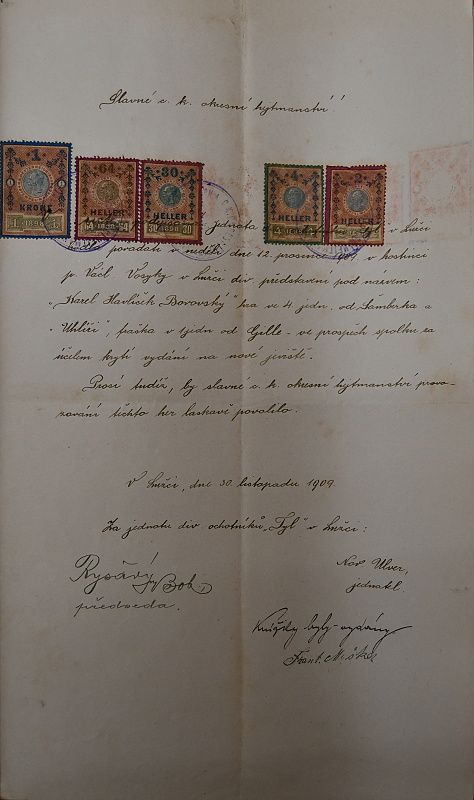 Slavné c. k. okresní hejtmanství!
1 KRONE 1 1898 1
64 HELLER 64 1898 64
30 HELLER 30 1898 30
4 HELLER 4 1898 4
2 HELLER 2 1898 2
jednota v Lužci
pořádati v neděli dne 12. prosince 1909 v hostinci
p. Václ. Vosyky v Lužci div. představení pod názvem:
„Karel Havlíček Borovský" hra ve 4. jedn. od Šamberka a
„Uhlíři", fraška v 1 jedn od Gille - ve prospěch spolku za
účelem krytí vydání na nové jeviště.
Prosí tudíž, by slavné c. k. okresní hejtmanství provo-
zování těchto her laskavě povolilo.
V Lužci, dne 30. listopadu 1909.
Za jednotu div. ochotníků „Tyl" v Lužci:
Rysavý Boh.
předseda.
Ulver,
jednatel.
Knížky byly vydány
Frant.